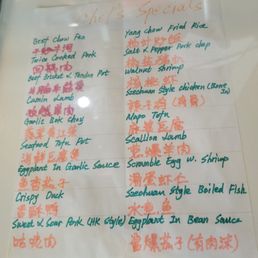 Chef's Specials
Beef Chow Fun
Twice Cooked Pork
回鍋肉
Beef Brisket & Tendon Pot
Cumin Lamb
孜然羊肉
Garlic Bok Choy
Seafood Tofu Pot
海鮮豆腐煲
Eggplant In Garlic Sauce
魚香茄子
Crispy Duck
香酥鴨
Sweet & Sour Pork (HK Style)
咕咾肉
Yang Chow Fried Rice
揚州炒飯
Salt & Pepper Pork Chop
Walnut Shrimp
Szechuan Style Chicken (Bone In)
辣子雞
Mapo Tofu
麻婆豆腐
Scallion Lamb
Scramble Egg w. Shrimp
滑蛋蝦仁
Szechuan Style Boiled Fish
水煮魚
Eggplant In Bean Sauce
醬爆茄子 (有肉沫)